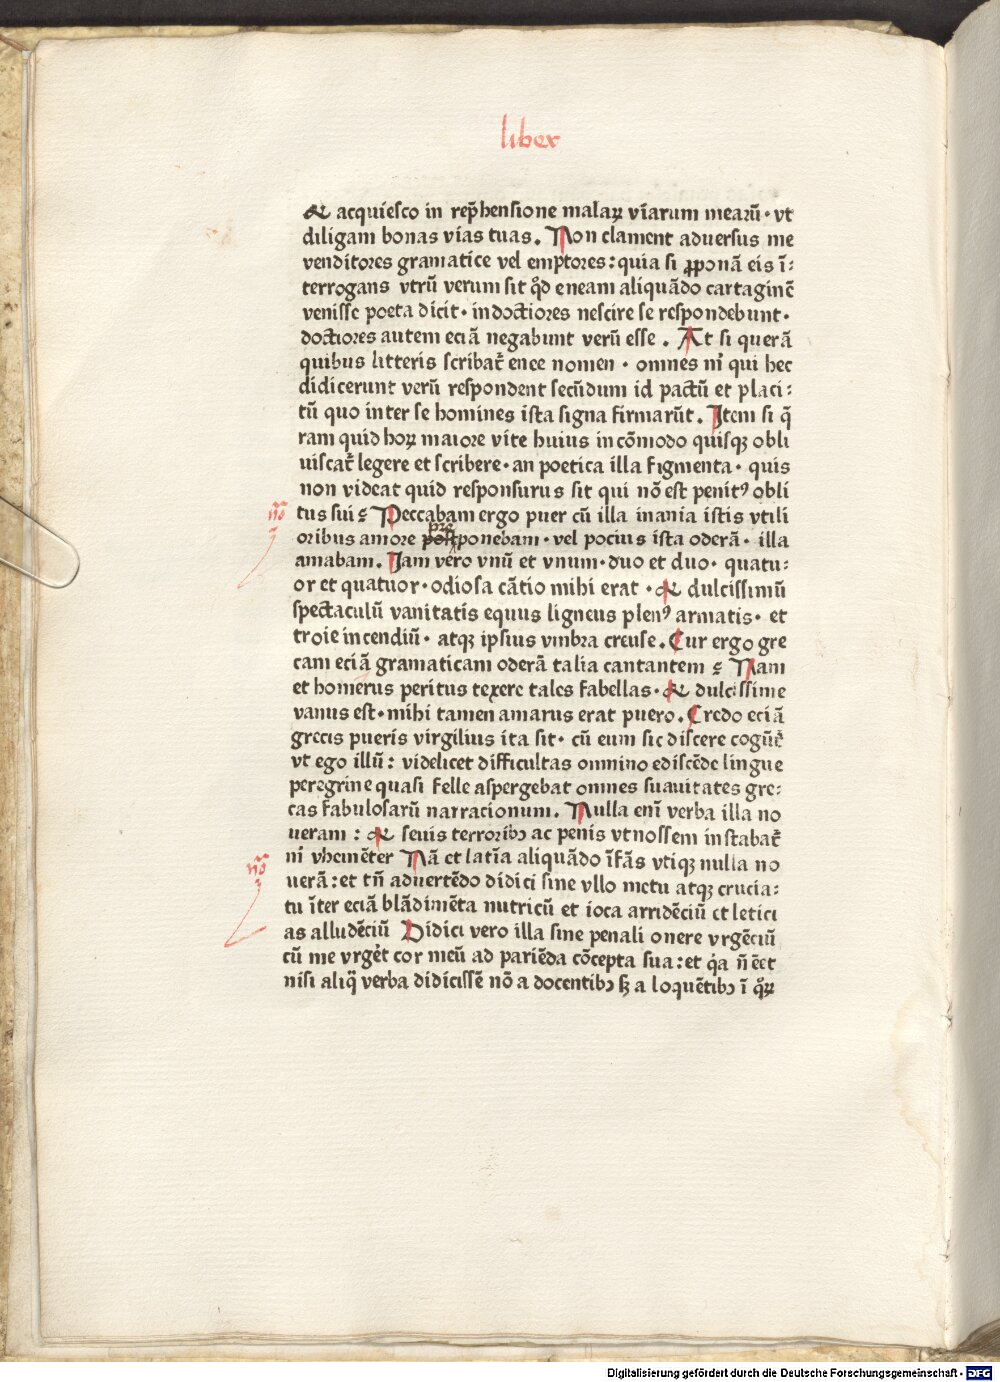 liber
Et acquiesco in rep̃hensione malaꝝ viarum mearū· vt
diligam bonas vias tuas. Non clament aduersus me
venditores gramatice vel emptores: quia si ꝓponā eis ī:
terrogans vtrū verum sit ꝙd eneam aliquādo cartaginē
venisse poeta dicit· indoctiores nescire se respondebunt·
doctiores autem eciā negabunt verū esse. At si querā
quibus litteris scribat̄ enee nomen· omnes m̄ qui hec
didicerunt verū respondent secūdum id pactū et placi:
tū quo inter se homines ista signa firmarūt. Item si q̄
ram quid hoꝝ maiore vite huius incōmodo quisqꝫ obli
uiscat̄ legere et scribere· an poetica illa figmenta· quis
non videat quid responsurus sit qui nō est penitꝰ obli
tus sui? Peccabam ergo puer cū illa inania istis vtili
pre
oribus amore postponebam· vel pocius ista oderā· illa
amabam. Iam vero vnū et vnum· duo et duo· quatu:
or et quatuor· odiosa cātio mihi erat· et dulcissimū
spectaculū vanitatis equus ligneus plenꝰ armatis· et
troie incendiū· atqꝫ ipsius vmbra creuse. Cur ergo gre
cam eciā gramaticam oderā talia cantantem? Nam
et homerus peritus texere tales fabellas· et dulcissime
vanus est· mihi tamen amarus erat puero. Credo eciā
grecis pueris virgilius ita sit· cū eum sic discere cogūt̄
vt ego illū: videlicet difficultas omnino ediscēde lingue
peregrine quasi felle aspergebat omnes suauitates gre:
cas fabulosarū narracionum. Nulla enī verba illa no
ueram: et seuis terroribꝫ ac penis vt nossem instabat̄
m̄ vhemēter Nā et latīa aliquādo īfās vtiqꝫ nulla no
uerā: et tn̄ aduertēdo didici sine vllo metu atqꝫ crucia:
tu īter eciā blādimēta nutricū et ioca arridēciū et letici
as alludēciū Didici vero illa sine penali onere vrgēciū
cū me vrgēt cor meū ad pariēda cōcepta sua: et q̇a n̄ eēt
nisi aliq̄ verba didicissē nō a docentibꝫ sꝫ a loquētibꝫ ī qͦꝝ
nō
nō
Digitalisierung gefördert durch die Deutsche Forschungsgemeinschaft - DFG